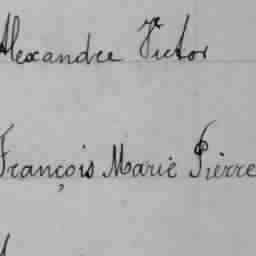 Alexandre Victor
François Marie Pierre